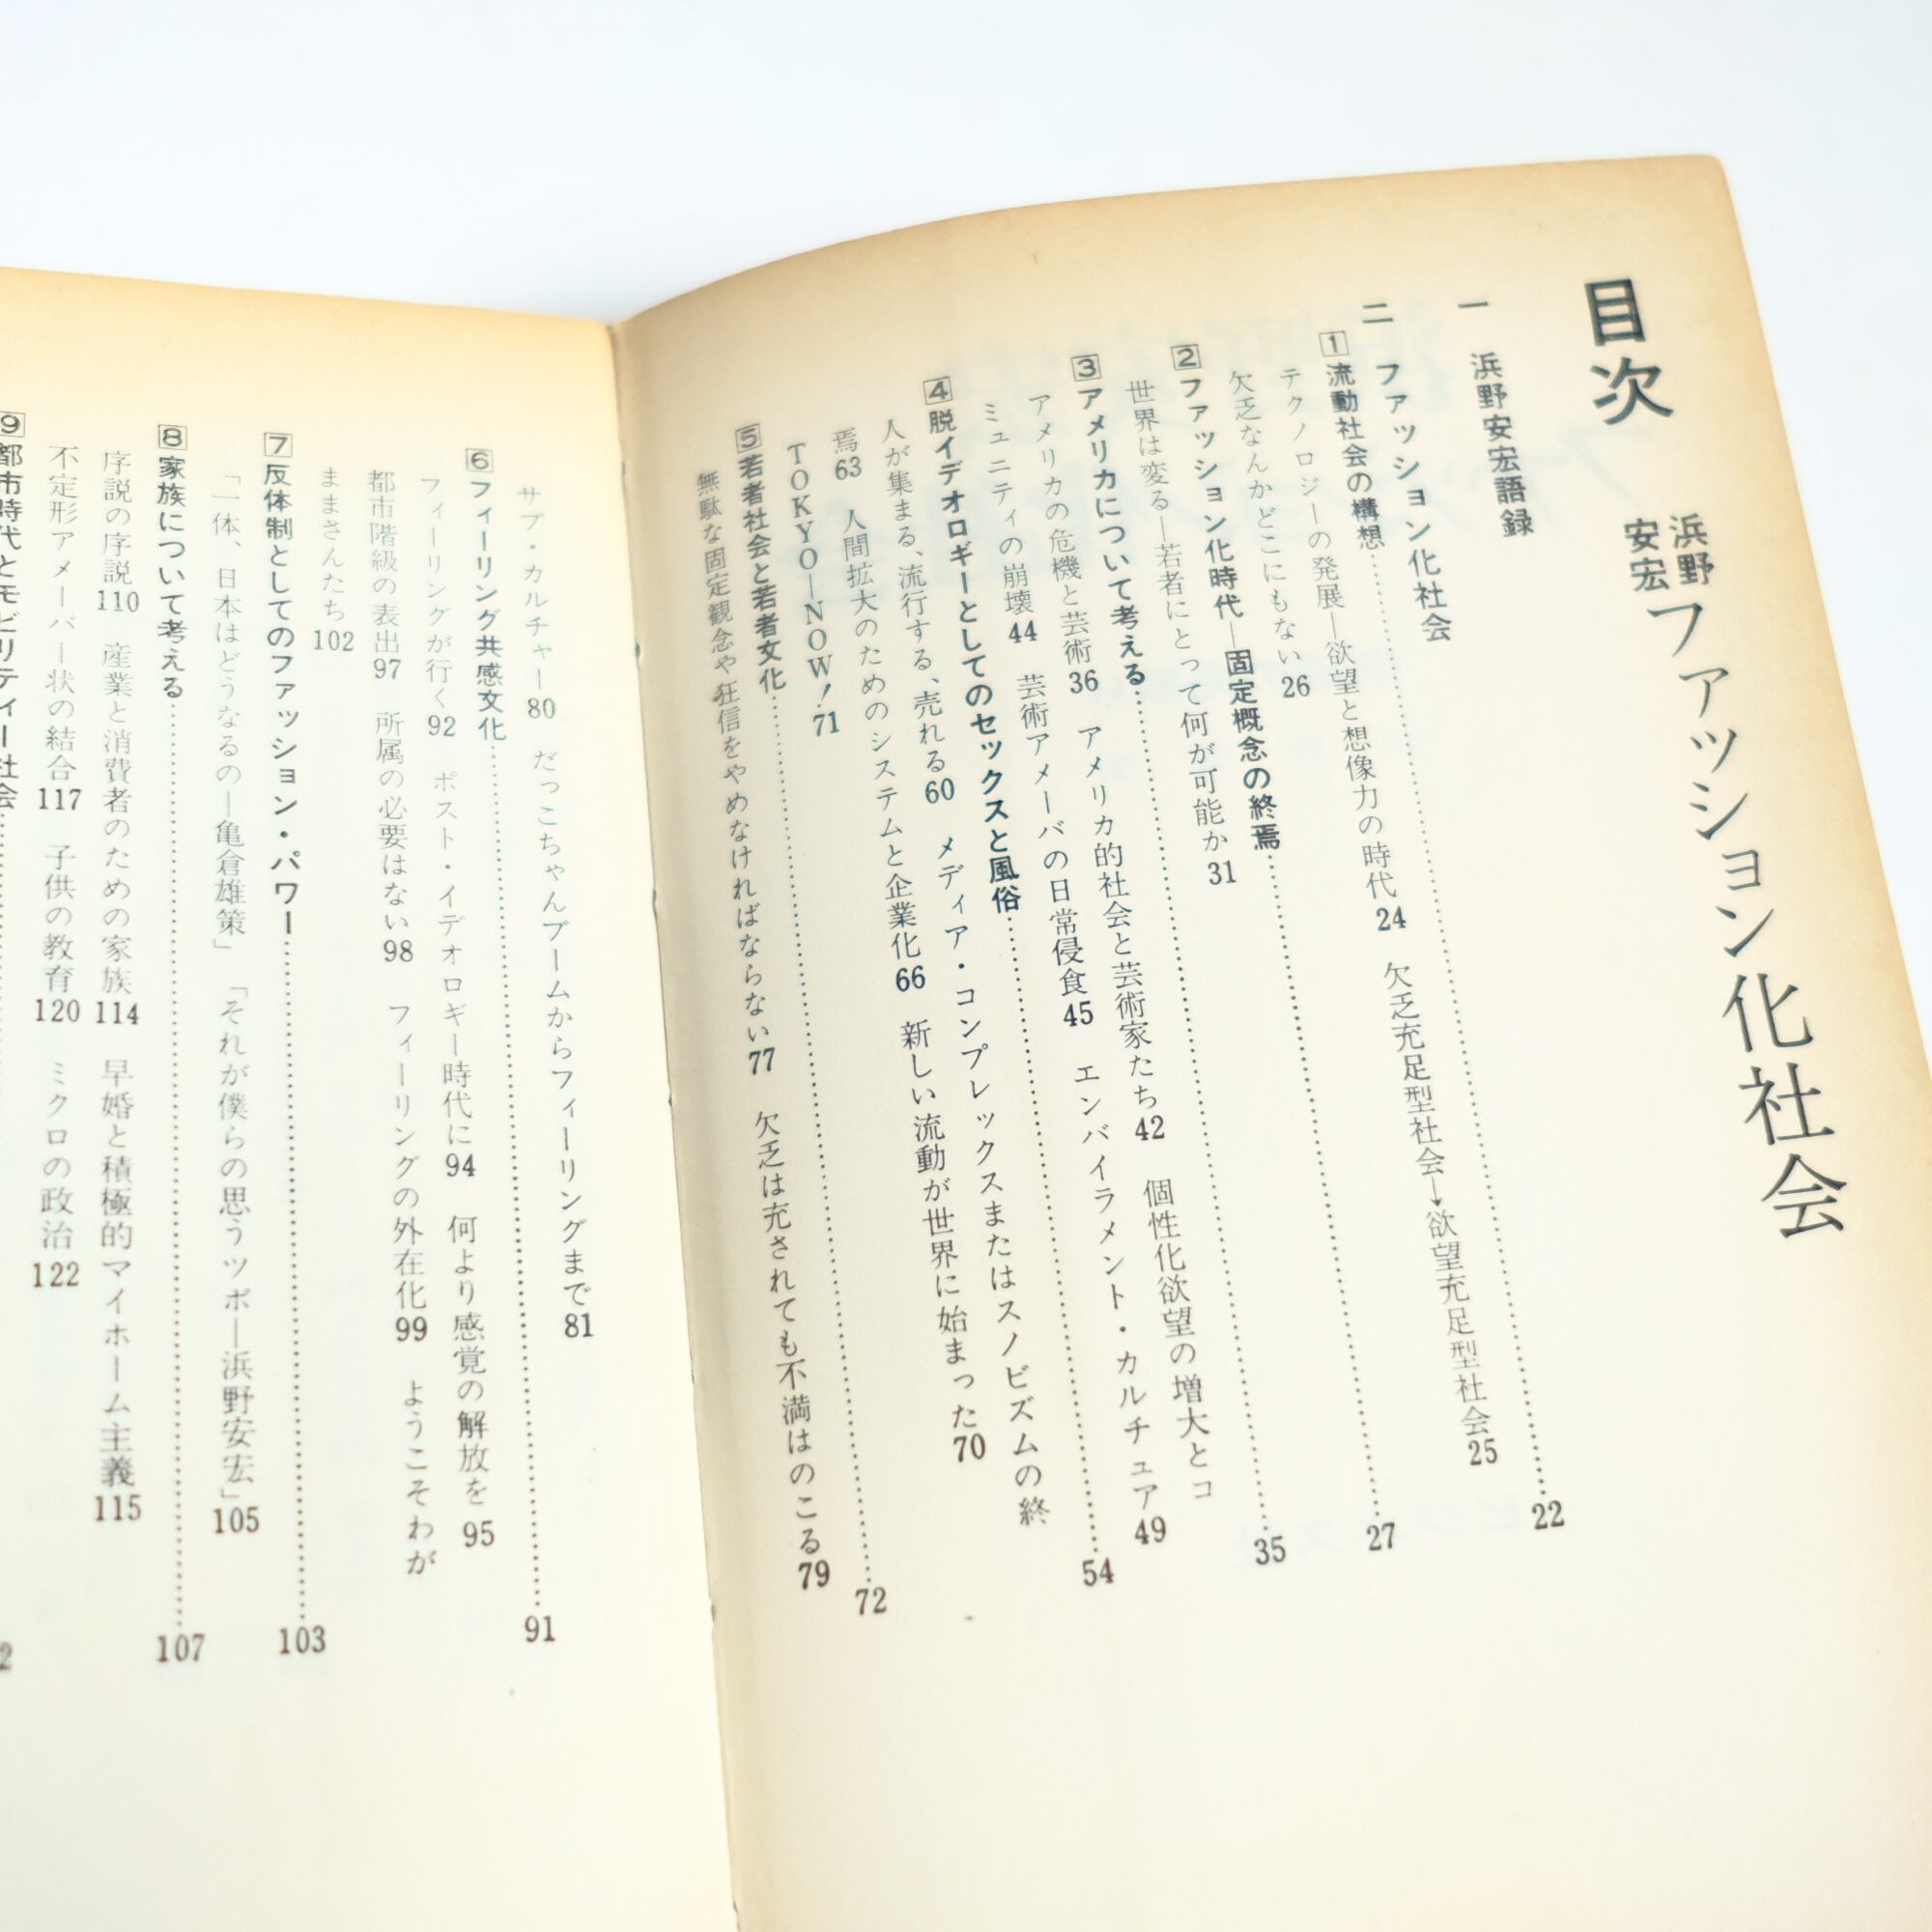 目次
浜野安宏 ファッション化社会
一 浜野安宏語録
二 ファッション化社会
1 流動社会の構想……22
テクノロジーの発展—欲望と想像力の時代24 欠乏充足型社会→欲望充足型社会25
欠乏なんかどこにもない26
2 ファッション化時代—固定概念の終焉……27
世界は変る—若者にとって何が可能か31
3 アメリカについて考える……35
アメリカの危機と芸術36 アメリカ的社会と芸術家たち42 個性化欲望の増大とコ
ミュニティの崩壊44 芸術アメーバの日常侵食45 エンバイラメント・カルチュア49
4 脱イデオロギーとしてのセックスと風俗……54
人が集まる、流行する、売れる60 メディア・コンプレックスまたはスノビズムの終
焉63 人間拡大のためのシステムと企業化66 新しい流動が世界に始まった70
TOKYO—NOW!71
5 若者社会と若者文化……72
無駄な固定観念や狂信をやめなければならない77 欠乏は充されても不満はのこる79
サブ・カルチャー80 だっこちゃんブームからフィーリングまで81
6 フィーリング共感文化……91
フィーリングが行く92 ポスト・イデオロギー時代に94 何より感覚の解放を95
都市階級の表出97 所属の必要はない98 フィーリングの外在化99 ようこそわが
ままさんたち102
7 反体制としてのファッション・パワー……103
「一体、日本はどうなるの—亀倉雄策」「それが僕らの思うツボ—浜野安宏」105
8 家族について考える……107
序説の序説110 産業と消費者のための家族114 早婚と積極的マイホーム主義115
不定形アメーバー状の結合117 子供の教育120 ミクロの政治122
9 都市時代とモビリティー社会……2